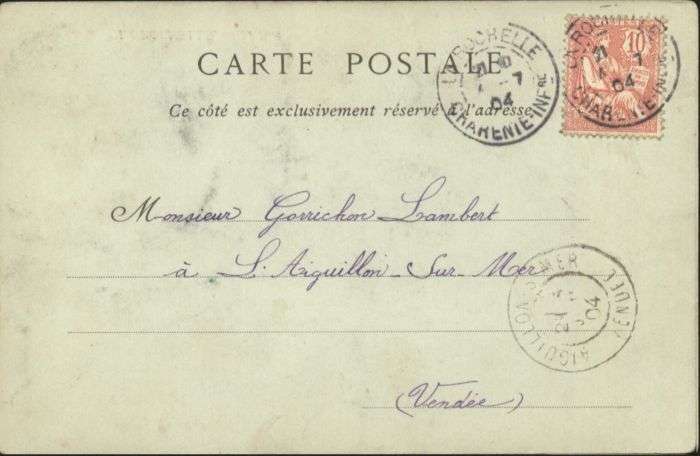 CARTE POSTALE
Ce côté est exclusivement réservé à l'adresse
LA ROCHELLE
7
04
CHARENTE INFRE
10
LA ROCHELLE
7
04
CHARENTE INFRE
Monsieur Gorrichon Lambert
à L'Aiguillon-Sur-Mer
(Vendée)
AIGUILLON S MER
VENDÉE
04